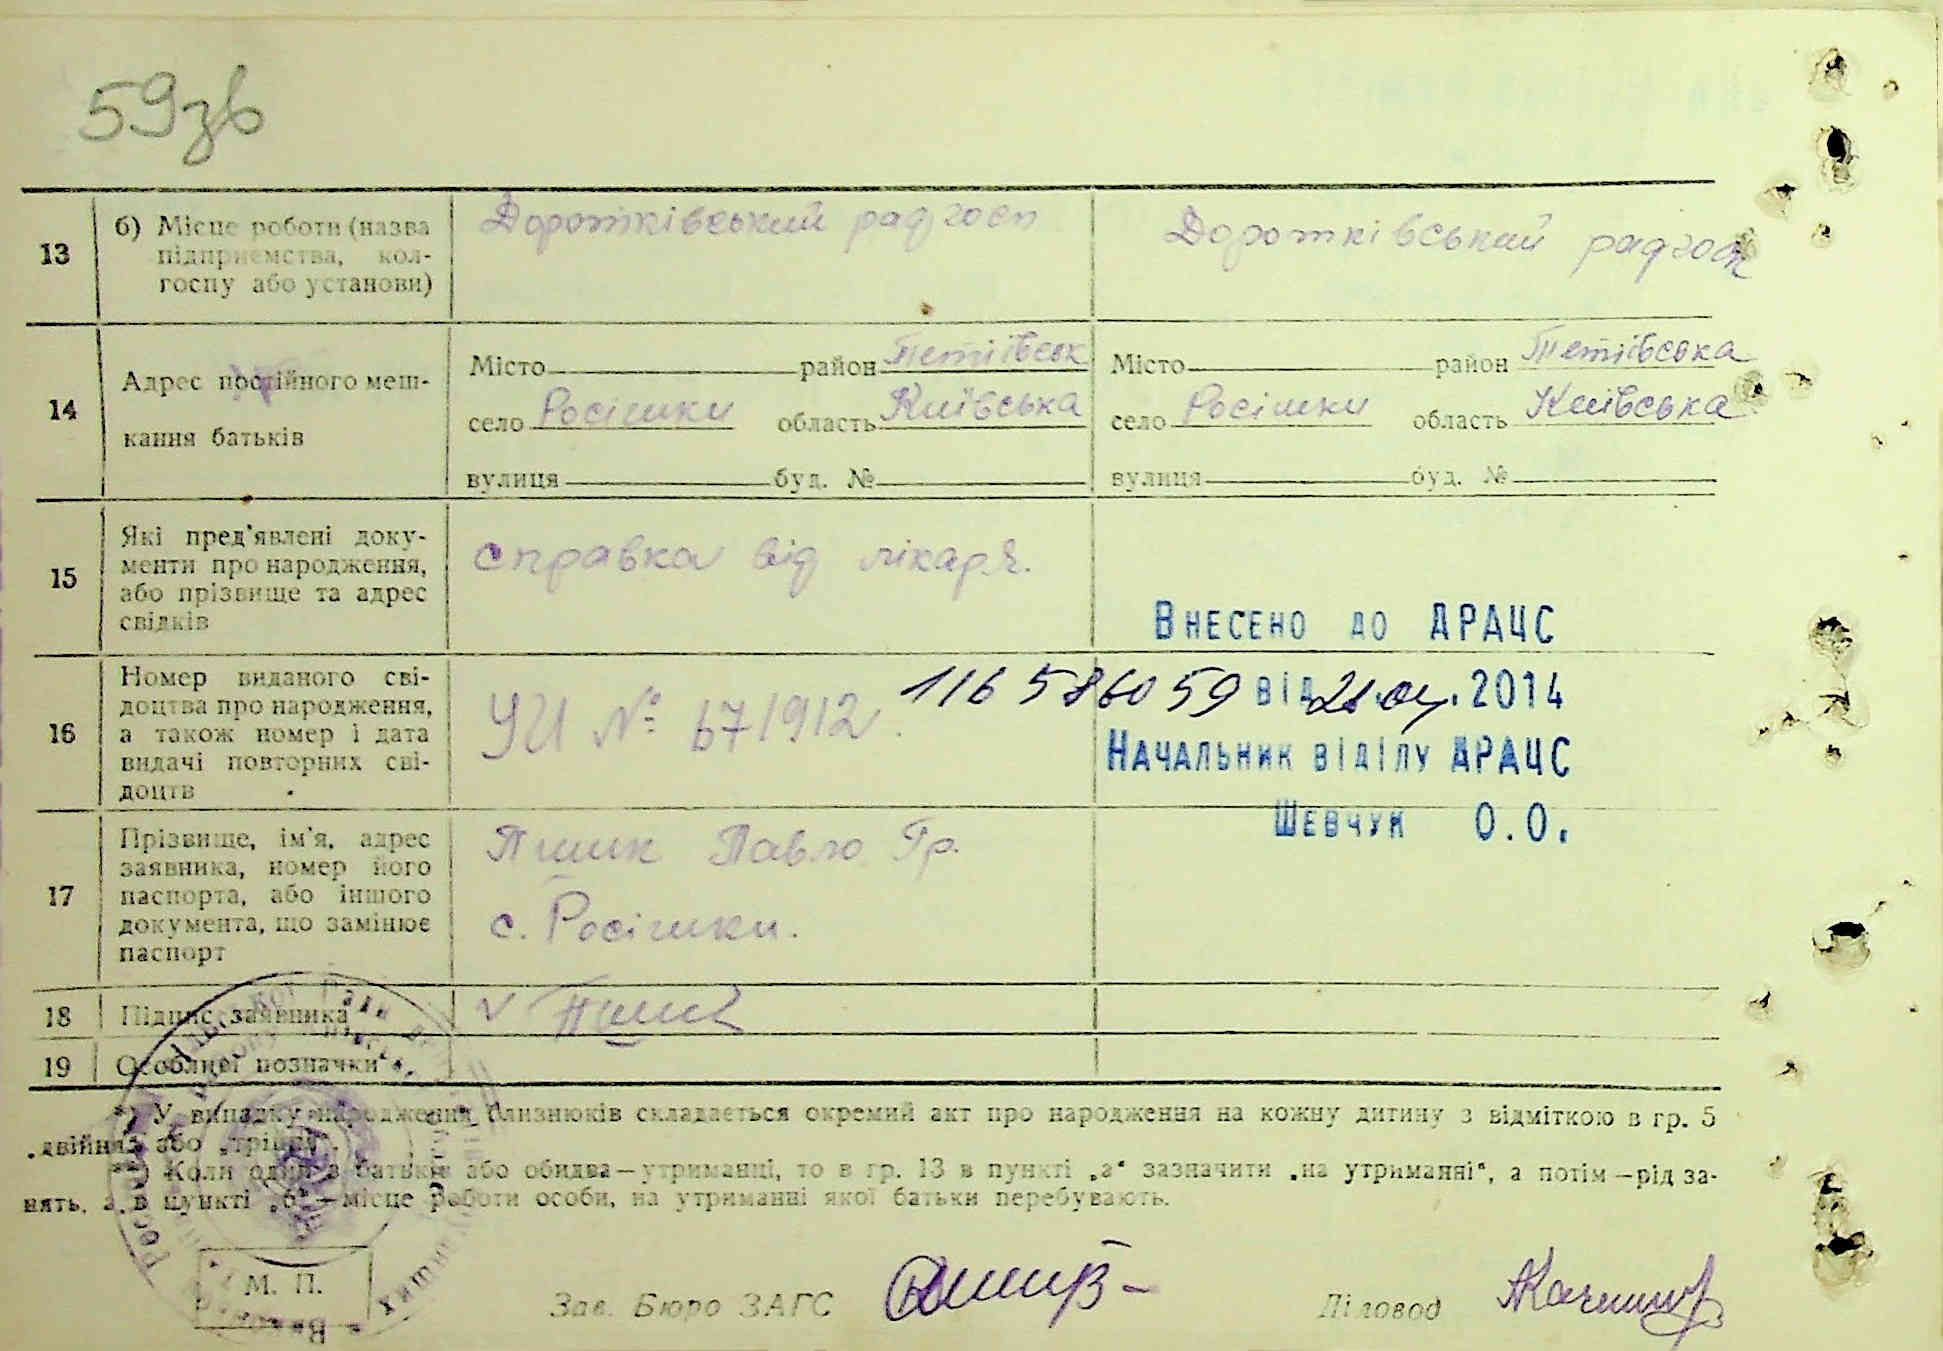 59зв
13 б) Місце роботи (назва підприємства, колгоспу або установи) Дорожківський радгосп Дорожківський радгосп
14 Адрес постійного мешкання батьків
Місто район Тетіївськ Місто район Тетіївська
село Росішки область Київська село Росішки область Київська
вулиця буд. № вулиця буд. №
15 Які пред'явлені документи про народження, або прізвище та адрес свідків справка від лікаря.
Внесено до ДРАЦС
16 Номер виданого свідоцтва про народження, а також номер і дата видачі повторних свідоцтв УИ № 671912.
від 2014
Начальник відділу ДРАЦС
Шевчук О.О.
17 Прізвище, ім'я, адрес заявника, номер його паспорта, або іншого документа, що замінює паспорт Пшик Павло Гр.
с. Росішки.
18 Підпис заявника
19 Особливі позначки
*) У випадку народження близнюків складається окремий акт про народження на кожну дитину з відміткою в гр. 5
„двійня" або „трійня".
Коли один з батьків або обидва—утриманці, то в гр. 13 в пункті „а" зазначити „на утриманні", а потім—рід за-
нять, а в пункті „б"—місце роботи особи, на утриманні якої батьки перебувають.
М. П.
Зав. Бюро ЗАГС Діловод